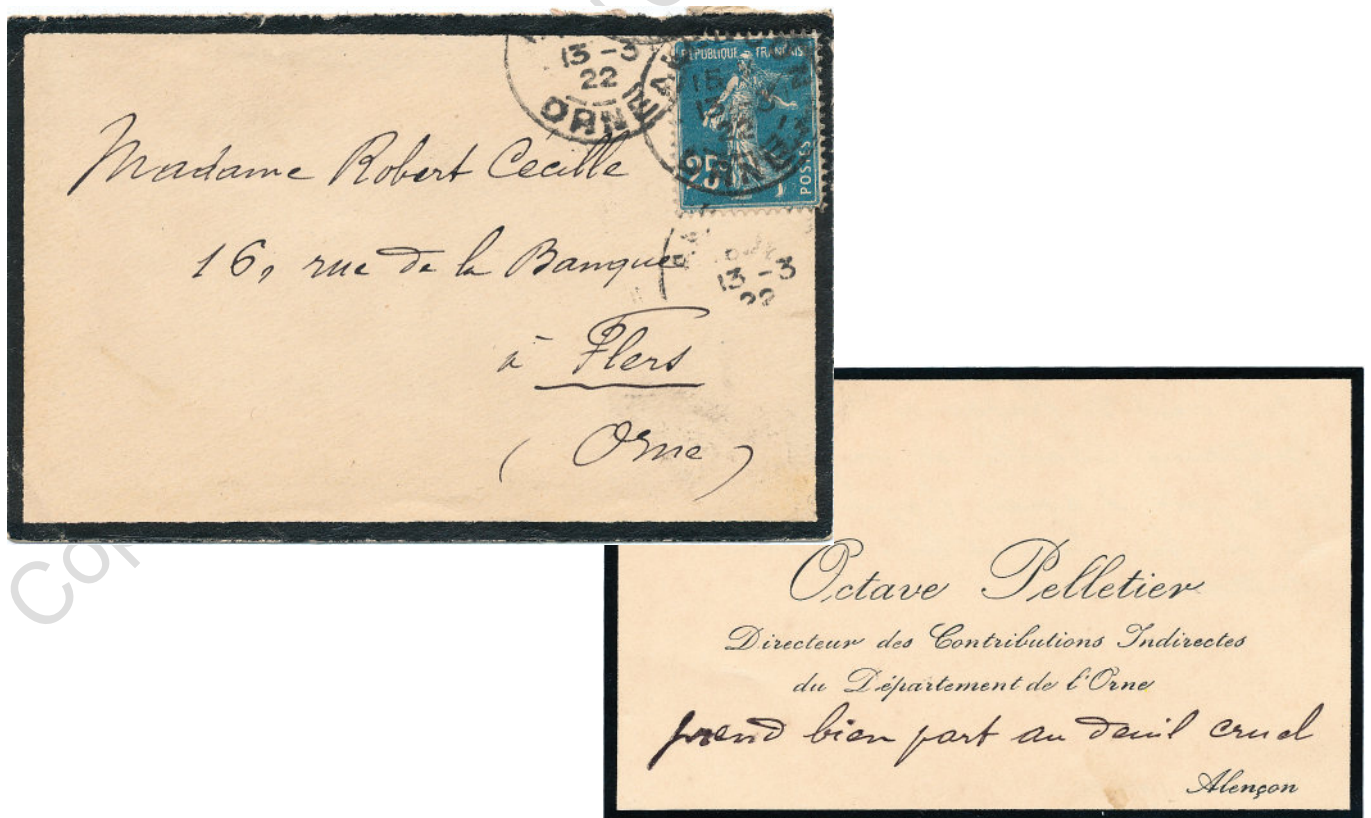 13 - 3
22
ORNE
RÉPUBLIQUE FRANÇAISE
13 - 3
22
25
POSTES
ORNE
Madame Robert Cecille
16, rue de la Banque
13 - 3
22
à Flers
(Orne)
Octave Pelletier
Directeur des Contributions Indirectes
du Département de l'Orne
prend bien part au deuil cruel
Alençon
Cop